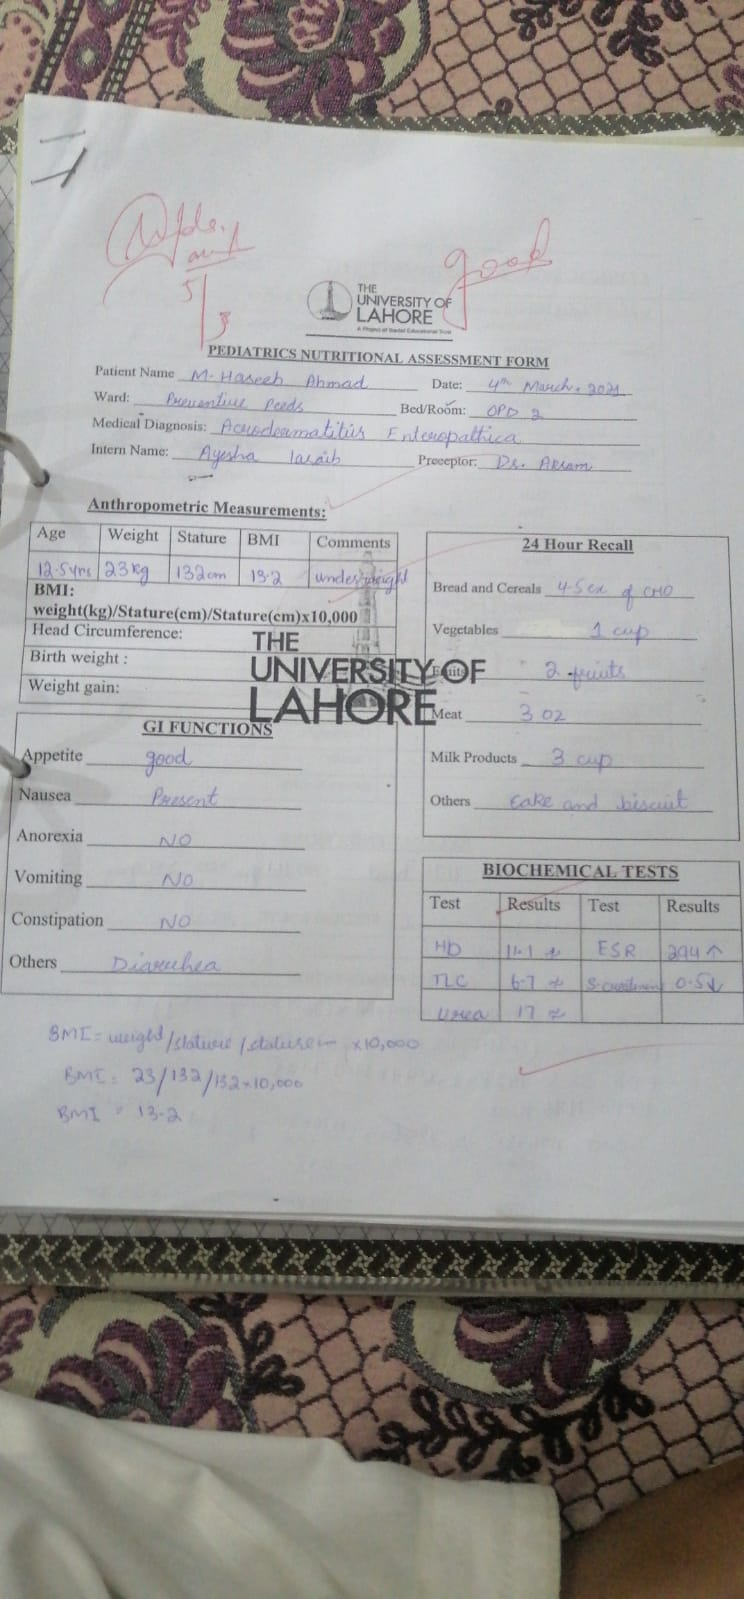 good
THE
UNIVERSITY OF
LAHORE
A Project of Ibadat Educational Trust
PEDIATRICS NUTRITIONAL ASSESSMENT FORM
Patient Name M. Haseeb Ahmad Date: 4th March, 2021
Ward: Preventive Peeds Bed/Room: OPD 2
Medical Diagnosis: Acrodermatitiis Enteropathica
Intern Name: Ayesha Preceptor: Dr. Akram
Anthropometric Measurements:
Age Weight Stature BMI Comments
12.5yrs 23kg 132cm 13.2 underweight
BMI:
weight(kg)/Stature(cm)/Stature(cm)x10,000
Head Circumference:
Birth weight :
Weight gain:
THE
UNIVERSITY OF
LAHORE
GI FUNCTIONS
Appetite good
Nausea Present
Anorexia NO
Vomiting NO
Constipation NO
Others Diarrhea
24 Hour Recall
Bread and Cereals of CHO
Vegetables 1 cup
Fruits 2 fruits
Meat 3 oz
Milk Products 3 cup
Others Cake and biscuit
BIOCHEMICAL TESTS
Test Results Test Results
Hb 11.1 ESR ↑
TLC 6.7 0.5↓
Urea 17
BMI = weight/stature/stature x10,000
BMI = 23/132/132x10,000
BMI = 13.2